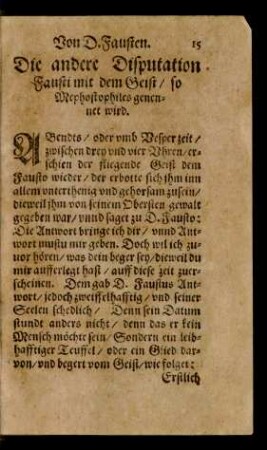 Von D. Fausten. 15
Die ander Disputation
Fausti mit dem Geist / so
Mephostophiles genen-
net wird.
ABendts / oder vmb Vesper zeit /
zwischen drey vnd vier Vhren / er-
schien der fliegende Geist dem
Fausto wieder / der erbotte sich jhm inn
allem vnterthenig vnd gehorsam zusein /
dieweil jhm von seinem Obersten gewalt
gegeben war / vnnd saget zu D. Fausto:
Die Antwort bringe ich dir / vnnd Ant-
wort mustu mir geben. Doch wil ich zu-
uor hören / was dein beger sey / dieweil du
mir aufferlegt hast / auff diese zeit zuer-
scheinen. Dem gab D. Faustus Ant-
wort / jedoch zweiffelhafftig / vnd seiner
Seelen schedlich / Denn sein Datum
stundt anders nicht / denn das er kein
Mensch möchte sein / Sondern ein leib-
hafftiger Teuffel / oder ein Glied dar-
von / vnd begert vom Geist / wie folget:
Erstlich